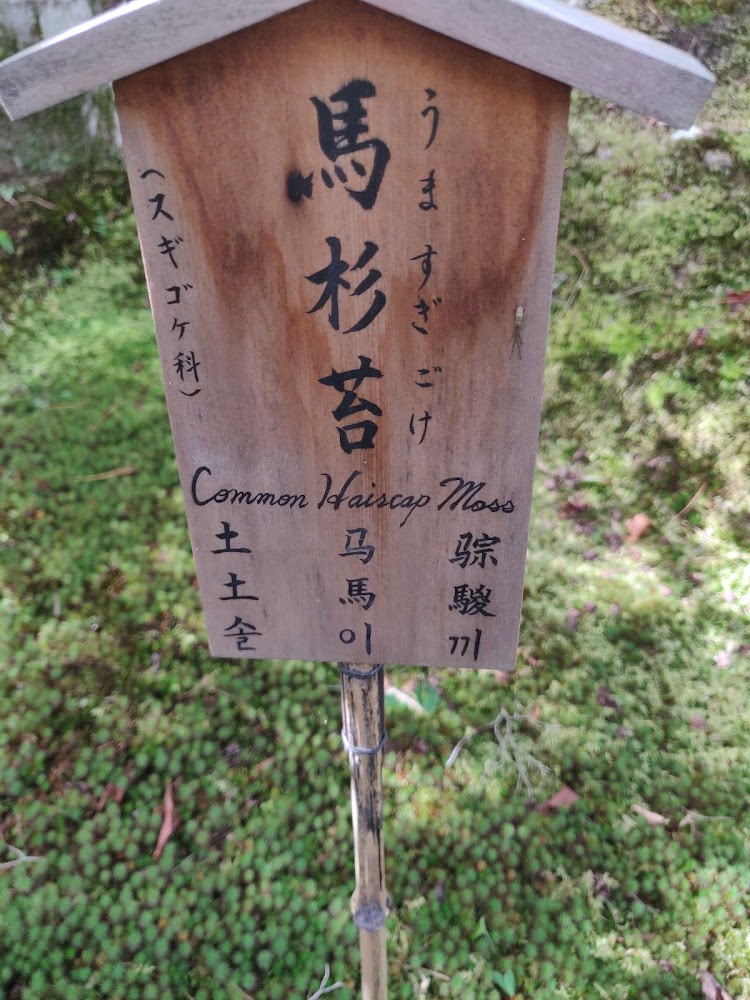 うますぎごけ
馬杉苔
(スギゴケ科)
Common Haircap Moss
土马骔
土馬騣
솔이끼